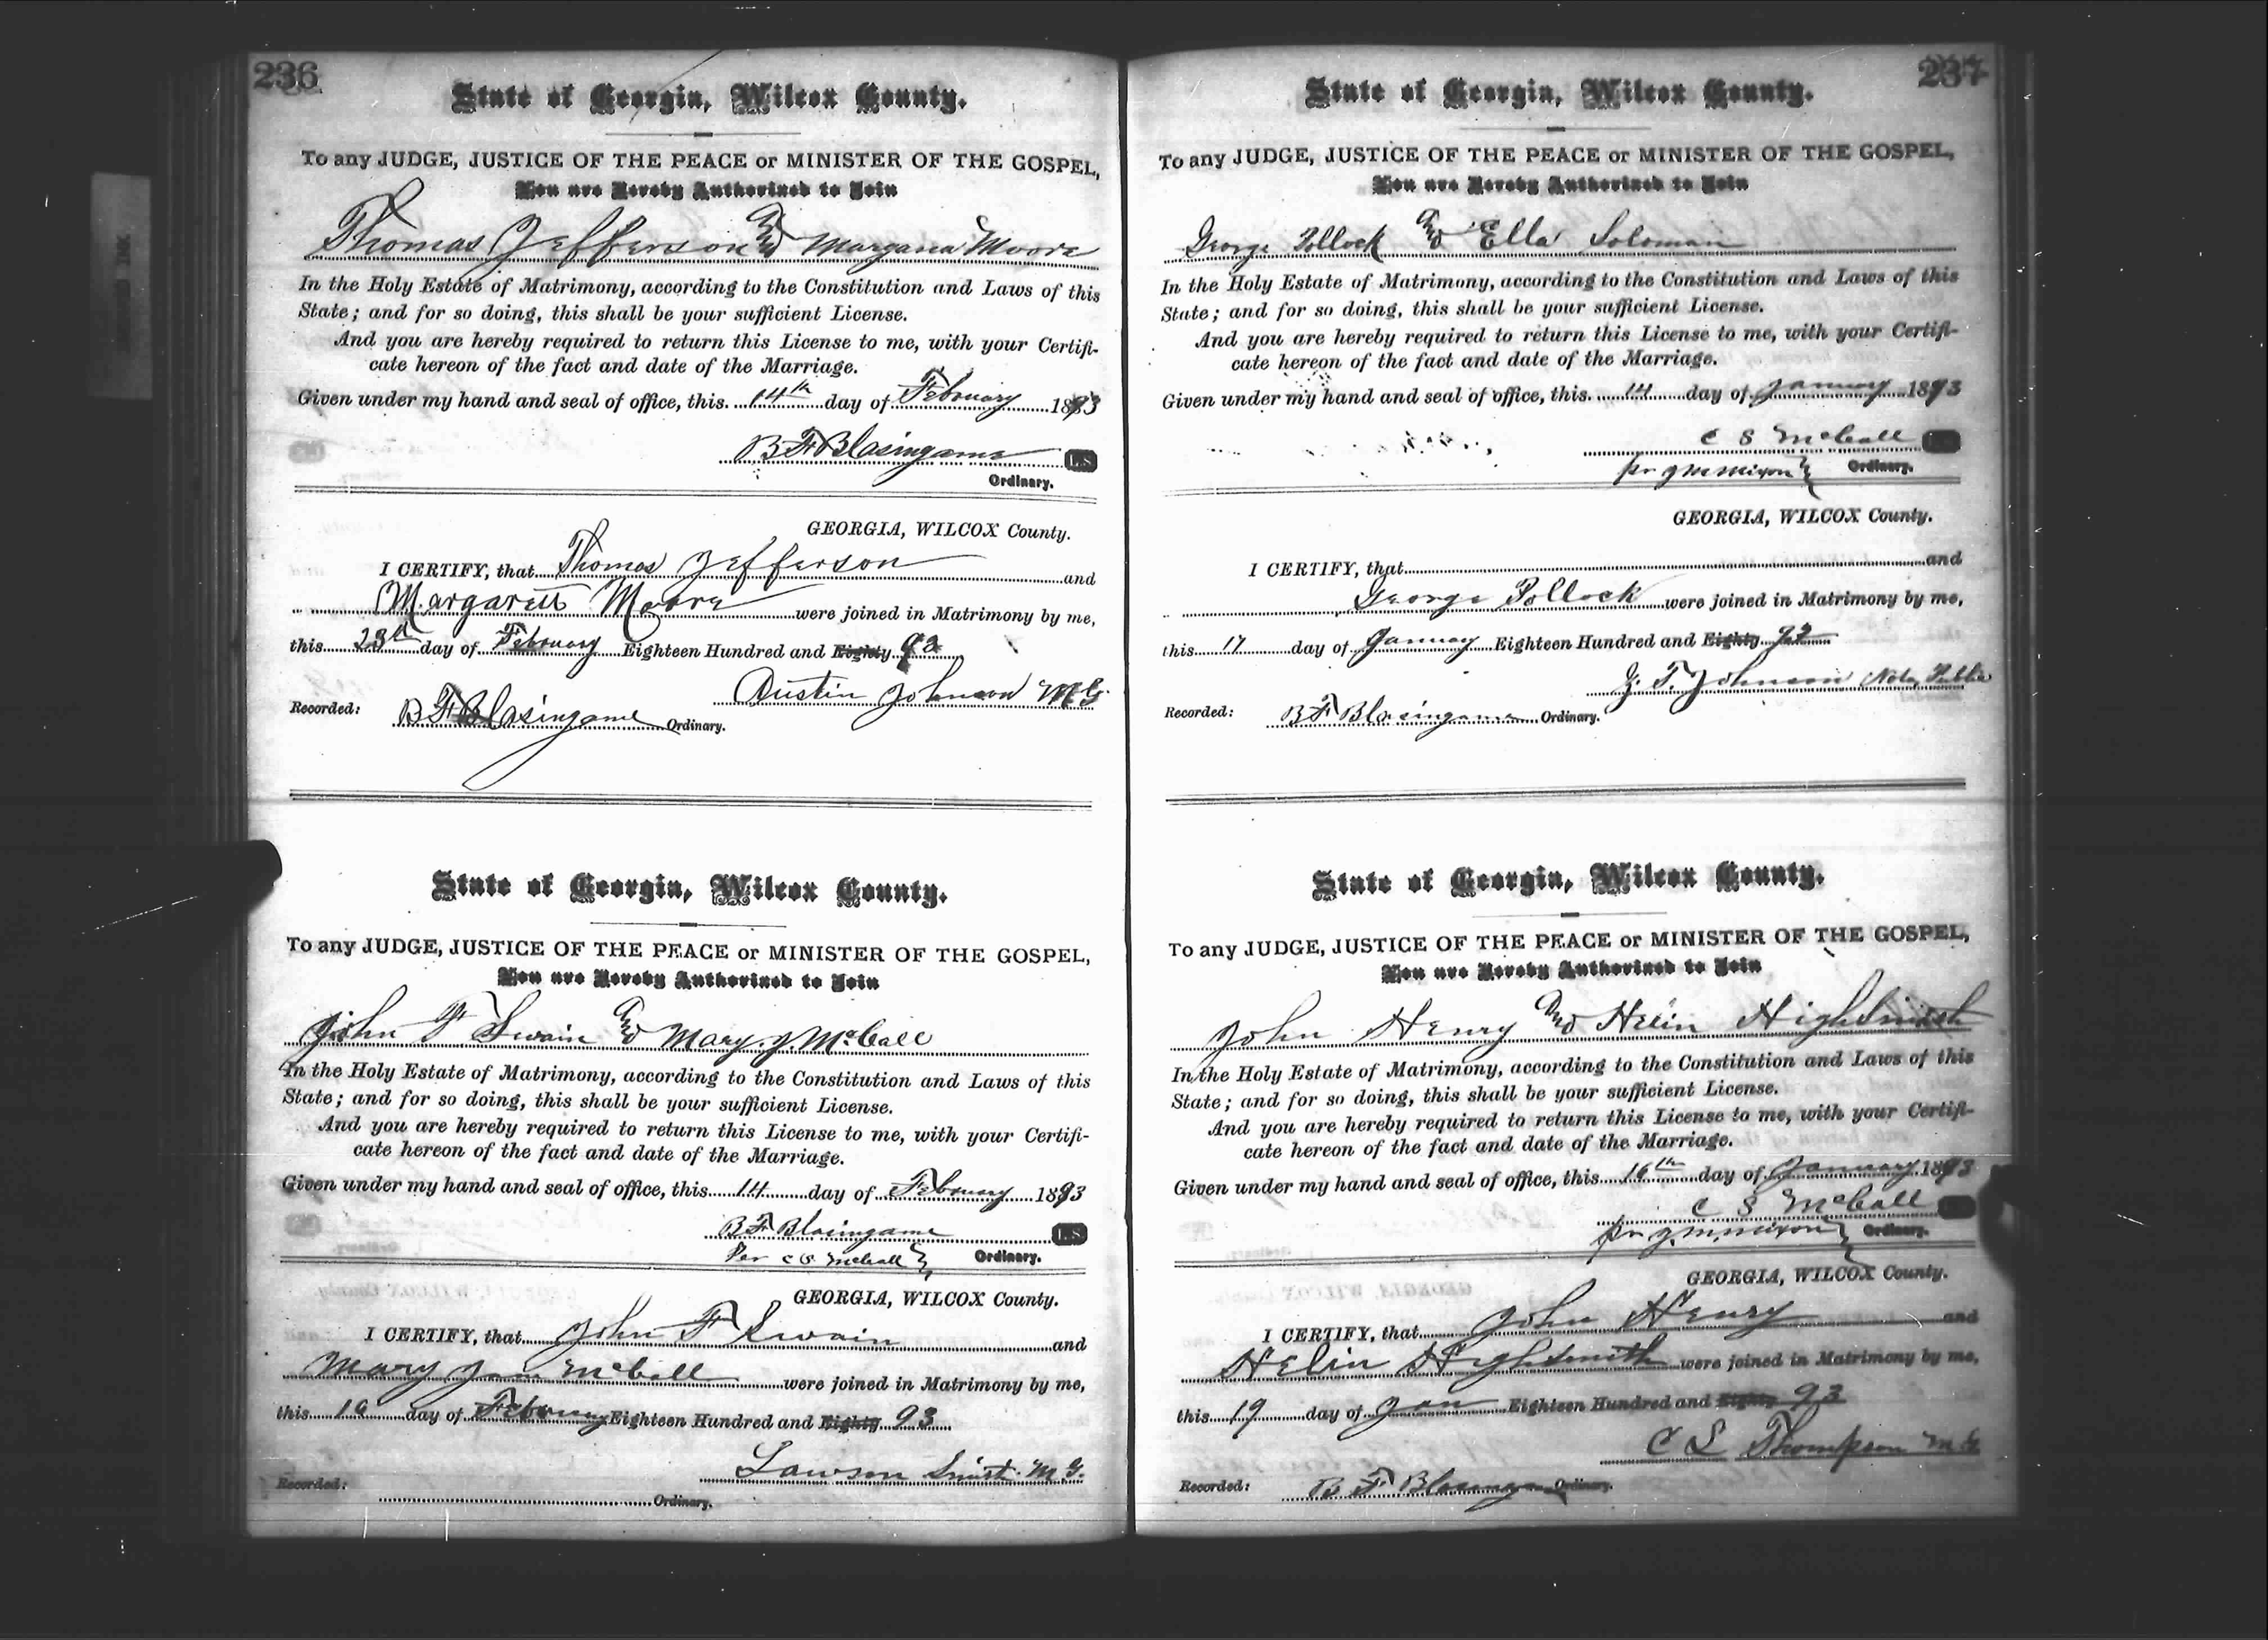 236
State of Georgia, Wilcox County.
To any JUDGE, JUSTICE OF THE PEACE or MINISTER OF THE GOSPEL,
You are Hereby Authorized to Join
Thomas Jefferson And Margaret Moore
In the Holy Estate of Matrimony, according to the Constitution and Laws of this
State; and for so doing, this shall be your sufficient License.
And you are hereby required to return this License to me, with your Certifi-
cate hereon of the fact and date of the Marriage.
Given under my hand and seal of office, this 14th day of February 1893
B F Blasingame L.S.
Ordinary.
GEORGIA, WILCOX County.
I CERTIFY, that Thomas Jefferson and
Margarett Moore were joined in Matrimony by me,
this 23th day of February Eighteen Hundred and Eighty 93
Austin Johnson M G
Recorded: B F Blasingame Ordinary.
State of Georgia, Wilcox County.
To any JUDGE, JUSTICE OF THE PEACE or MINISTER OF THE GOSPEL,
You are Hereby Authorized to Join
John F Swain And Mary J. McCall
In the Holy Estate of Matrimony, according to the Constitution and Laws of this
State; and for so doing, this shall be your sufficient License.
And you are hereby required to return this License to me, with your Certifi-
cate hereon of the fact and date of the Marriage.
Given under my hand and seal of office, this 14 day of February 1893
B F Blasingame L.S.
Per C S McCall Ordinary.
GEORGIA, WILCOX County.
I CERTIFY, that John F Swain and
Mary Jane McCall were joined in Matrimony by me,
this 16 day of February Eighteen Hundred and Eighty 93
Lawson M. G.
Recorded: Ordinary.
237
State of Georgia, Wilcox County.
To any JUDGE, JUSTICE OF THE PEACE or MINISTER OF THE GOSPEL,
You are Hereby Authorized to Join
George Pollock And Ella Soloman
In the Holy Estate of Matrimony, according to the Constitution and Laws of this
State; and for so doing, this shall be your sufficient License.
And you are hereby required to return this License to me, with your Certifi-
cate hereon of the fact and date of the Marriage.
Given under my hand and seal of office, this 14 day of January 1893
C S McCall
pr J M Mixon Ordinary.
GEORGIA, WILCOX County.
I CERTIFY, that and
George Pollock were joined in Matrimony by me,
this 17 day of January Eighteen Hundred and Eighty 93
J. T. Johnson Noty Public
Recorded: B F Blasingame Ordinary.
State of Georgia, Wilcox County.
To any JUDGE, JUSTICE OF THE PEACE or MINISTER OF THE GOSPEL,
You are Hereby Authorized to Join
John Henry And Helin Highsmith
In the Holy Estate of Matrimony, according to the Constitution and Laws of this
State; and for so doing, this shall be your sufficient License.
And you are hereby required to return this License to me, with your Certifi-
cate hereon of the fact and date of the Marriage.
Given under my hand and seal of office, this 16th day of January 1893
C S McCall
pr J. M. Mixon Ordinary.
GEORGIA, WILCOX County.
I CERTIFY, that John Henry and
Helin Highsmith were joined in Matrimony by me,
this 19 day of Jan Eighteen Hundred and Eighty 93
C L Thompson M G
Recorded: B F Blasingame Ordinary.